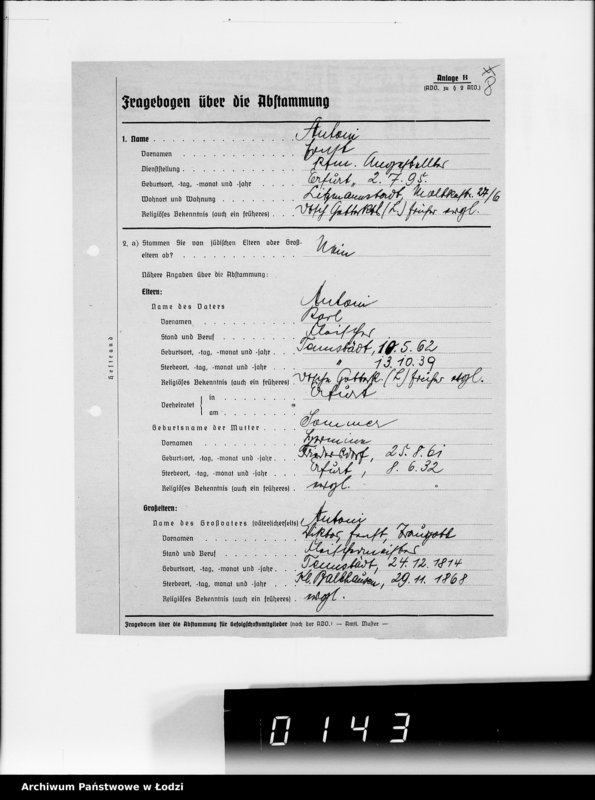 Anlage B
(ADO. zu § 2 ATO.)
Fragebogen über die Abstammung
1. Name Antoni
Vornamen Ernst
Dienststellung kfm. Angestellter
Geburtsort, -tag, -monat und -jahr Erfurt, 2.7.95.
Wohnort und Wohnung Litzmannstadt, 27/6
Religiöses Bekenntnis (auch ein früheres) (L) früher evgl.
2. a) Stammen Sie von jüdischen Eltern oder Groß-
eltern ab? Nein
Nähere Angaben über die Abstammung:
Eltern:
Name des Vaters Antoni
Vornamen Karl
Stand und Beruf Fleischer
Geburtsort, -tag, -monat und -jahr Tennstädt, 10.5.62
Sterbeort, -tag, -monat und -jahr " 13.10.39
Religiöses Bekenntnis (auch ein früheres) (L) früher evgl.
Verheiratet { in Erfurt
am
Geburtsname der Mutter Sommer
Vornamen Hermine
Geburtsort, -tag, -monat und -jahr 25.8.61
Sterbeort, -tag, -monat und -jahr Erfurt, 8.6.32
Religiöses Bekenntnis (auch ein früheres) evgl.
Großeltern:
Name des Großvaters (väterlicherseits) Antoni
Vornamen Viktor, Ernst, Traugott
Stand und Beruf Fleischermeister
Geburtsort, -tag, -monat und -jahr Tennstädt, 24.12.1814
Sterbeort, -tag, monat und -jahr Kl. Ballhausen, 29.11.1868
Religiöses Bekenntnis (auch ein früheres) evgl.
Fragebogen über die Abstammung für Gefolgschaftsmitglieder (nach der ADO.) — Amtl. Muster —
Heftrand
0143
Archiwum Państwowe w Łodzi